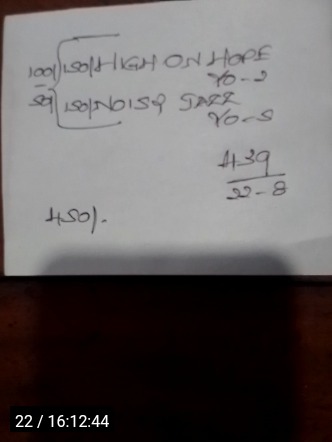 100/ 150/ HIGH ON HOPE
YO-2
50/ 150/ NOISY JAZZ
YO-5
439
22-8
450/-
22 / 16:12:44